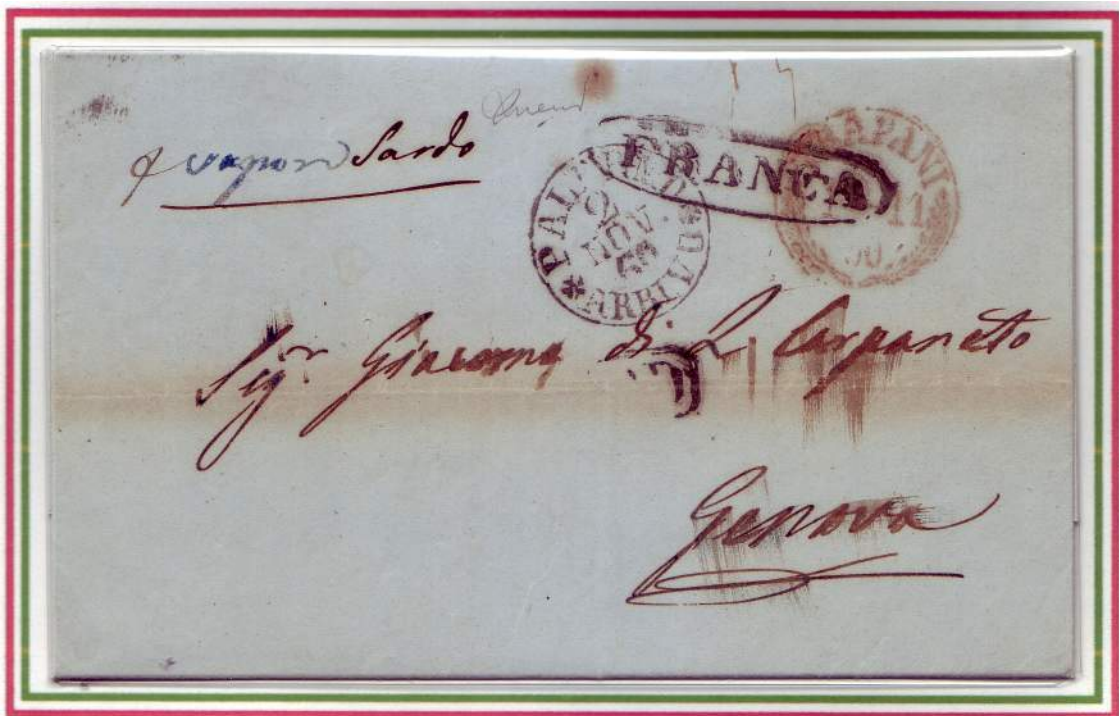 vapore Sardo
FRANCA
TRAPANI
11
PAL
2
NOV
60
ARRIVO
Sigr Giacomo di L Carpaneto
Genova